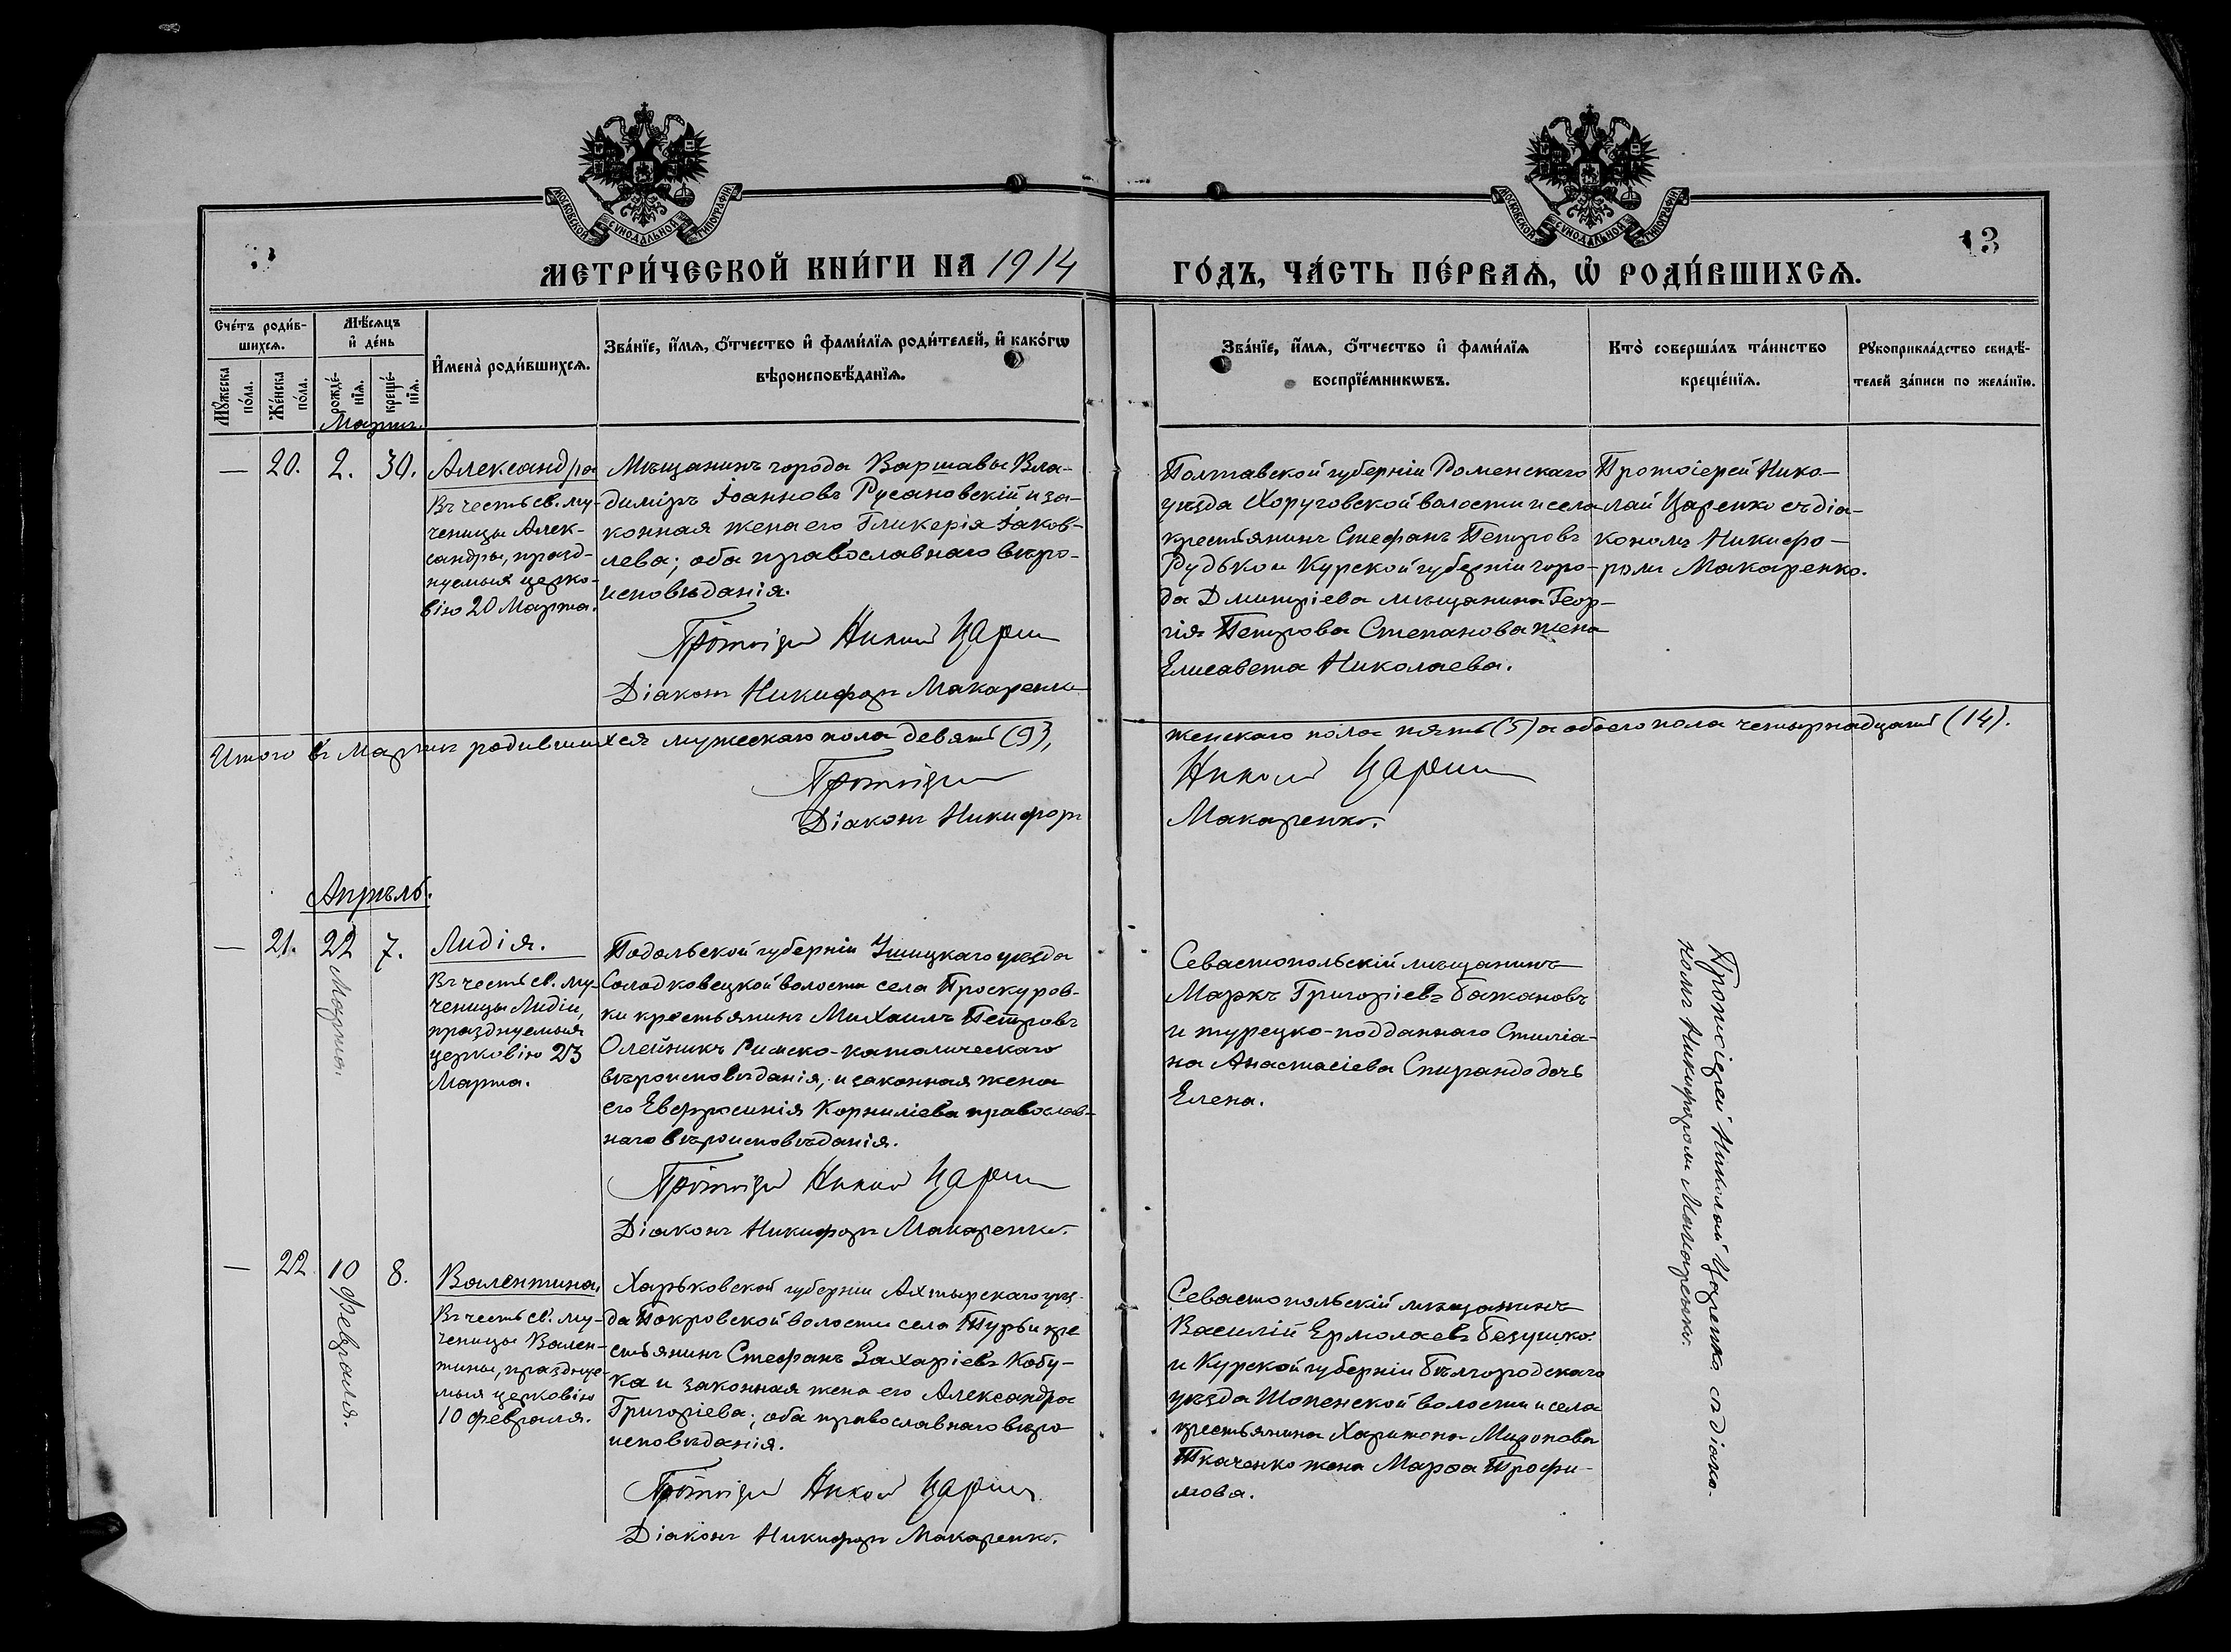 МОСКОВСКОЙ СѴНОДАЛЬНОЙ ТИПОГРАФІИ
МОСКОВСКОЙ СѴНОДАЛЬНОЙ ТИПОГРАФІИ
13
МЕТРИ́ЧЕСКОЙ КНИ́ГИ НА 1914
ГО́ДЪ, ЧА́СТЬ ПЕ́РВАѦ, Ѡ҆ РОДИ́ВШИХСѦ.
Сче́тъ роди́в-
шихсѧ.
Мꙋ́жеска
по́ла.
Же́нска
по́ла.
Мѣ́сѧцъ
и҆ де́нь
рожде́-
нїѧ.
креще́-
нїѧ.
И҆мена̀ роди́вшихсѧ.
Зва́нїе, и҆́мѧ, ѻ҆́тчество и҆ фами́лїѧ роди́телей, и҆ како́гѡ
вѣроисповѣ́данїѧ.
Зва́нїе, и҆́мѧ, ѻ҆́тчество и҆ фами́лїѧ
воспрїе́мникѡвъ.
Кто̀ соверша́лъ та́инство
креще́нїѧ.
Рꙋкоприкла́дство свидѣ́-
телей за́писи по жела́нїю.
Мартъ.
— 20. 2. 30.
Александра
Въ честь св. му-
ченицы Алек-
сандры, празд-
нуемыя церко-
вію 20 Марта.
Мѣщанинъ города Варшавы Вла-
диміръ Іоанновъ Русановскій и за-
конная жена его Гликерія Іаков-
лева; оба православнаго вѣро-
исповѣданія.
Протоіерей Николай Царенко
Діаконъ Никифоръ Макаренко
Полтавской губерніи Роменскаго
уѣзда Хоруговской волости и села
крестьянинъ Стефанъ Петровъ
Рудько и Курской губерніи горо-
да Дмитріева мѣщанина Геор-
гія Петрова Степанова жена
Елисавета Николаева.
Протоіерей Нико-
лай Царенко съ діа-
кономъ Никифо-
ромъ Макаренко.
Итого въ Мартѣ родившихся мужескаго пола девять (9),
женскаго пола пять (5) а обоего пола четырнадцать (14).
Протоіерей
Николай Царенко
Діаконъ Никифоръ
Макаренко.
Апрѣль.
— 21. 22 Марта. 7.
Лидія.
Въ честь св. му-
ченицы Лидіи,
празднуемыя
церковію 23
Марта.
Подольской губерніи Ушицкаго уѣзда
Солодковецкой волости села Проскуров-
ки крестьянинъ Михаилъ Петровъ
Олейникъ Римско-католическаго
вѣроисповѣданія, и законная жена
его Евфросинія Корниліева православ-
наго вѣроисповѣданія.
Протоіерей Николай Царенко
Діаконъ Никифоръ Макаренко.
Севастопольскій мѣщанинъ
Маркъ Григоріевъ Бажановъ
и турецко-подданнаго Стиліа-
на Анастасіева Спирандо дочь
Елена.
Протоіерей Николай Царенко съ діако-
номъ Никифоромъ Макаренко.
— 22 10 Февраля. 8.
Валентина.
Въ честь св. му-
ченицы Вален-
тины, праздуе-
мыя церковію
10 февраля.
Харьковской губерніи Ахтырскаго уѣз-
да Покровской волости села Турьи кре
стьянинъ Стефанъ Захаріевъ Кобу-
ка и законная жена его Александра
Григоріева; оба православнаго вѣро
исповѣданія.
Протоіерей Николай Царенко
Діаконъ Никифоръ Макаренко.
Севастопольскій мѣщанинъ
Василій Ермолаевъ
и Курской губерніи Бѣлгородскаго
уѣзда Шопенской волости и села
крестьянина Харитона Миронова
Ткаченко жена Марѳа Трофи-
мова.